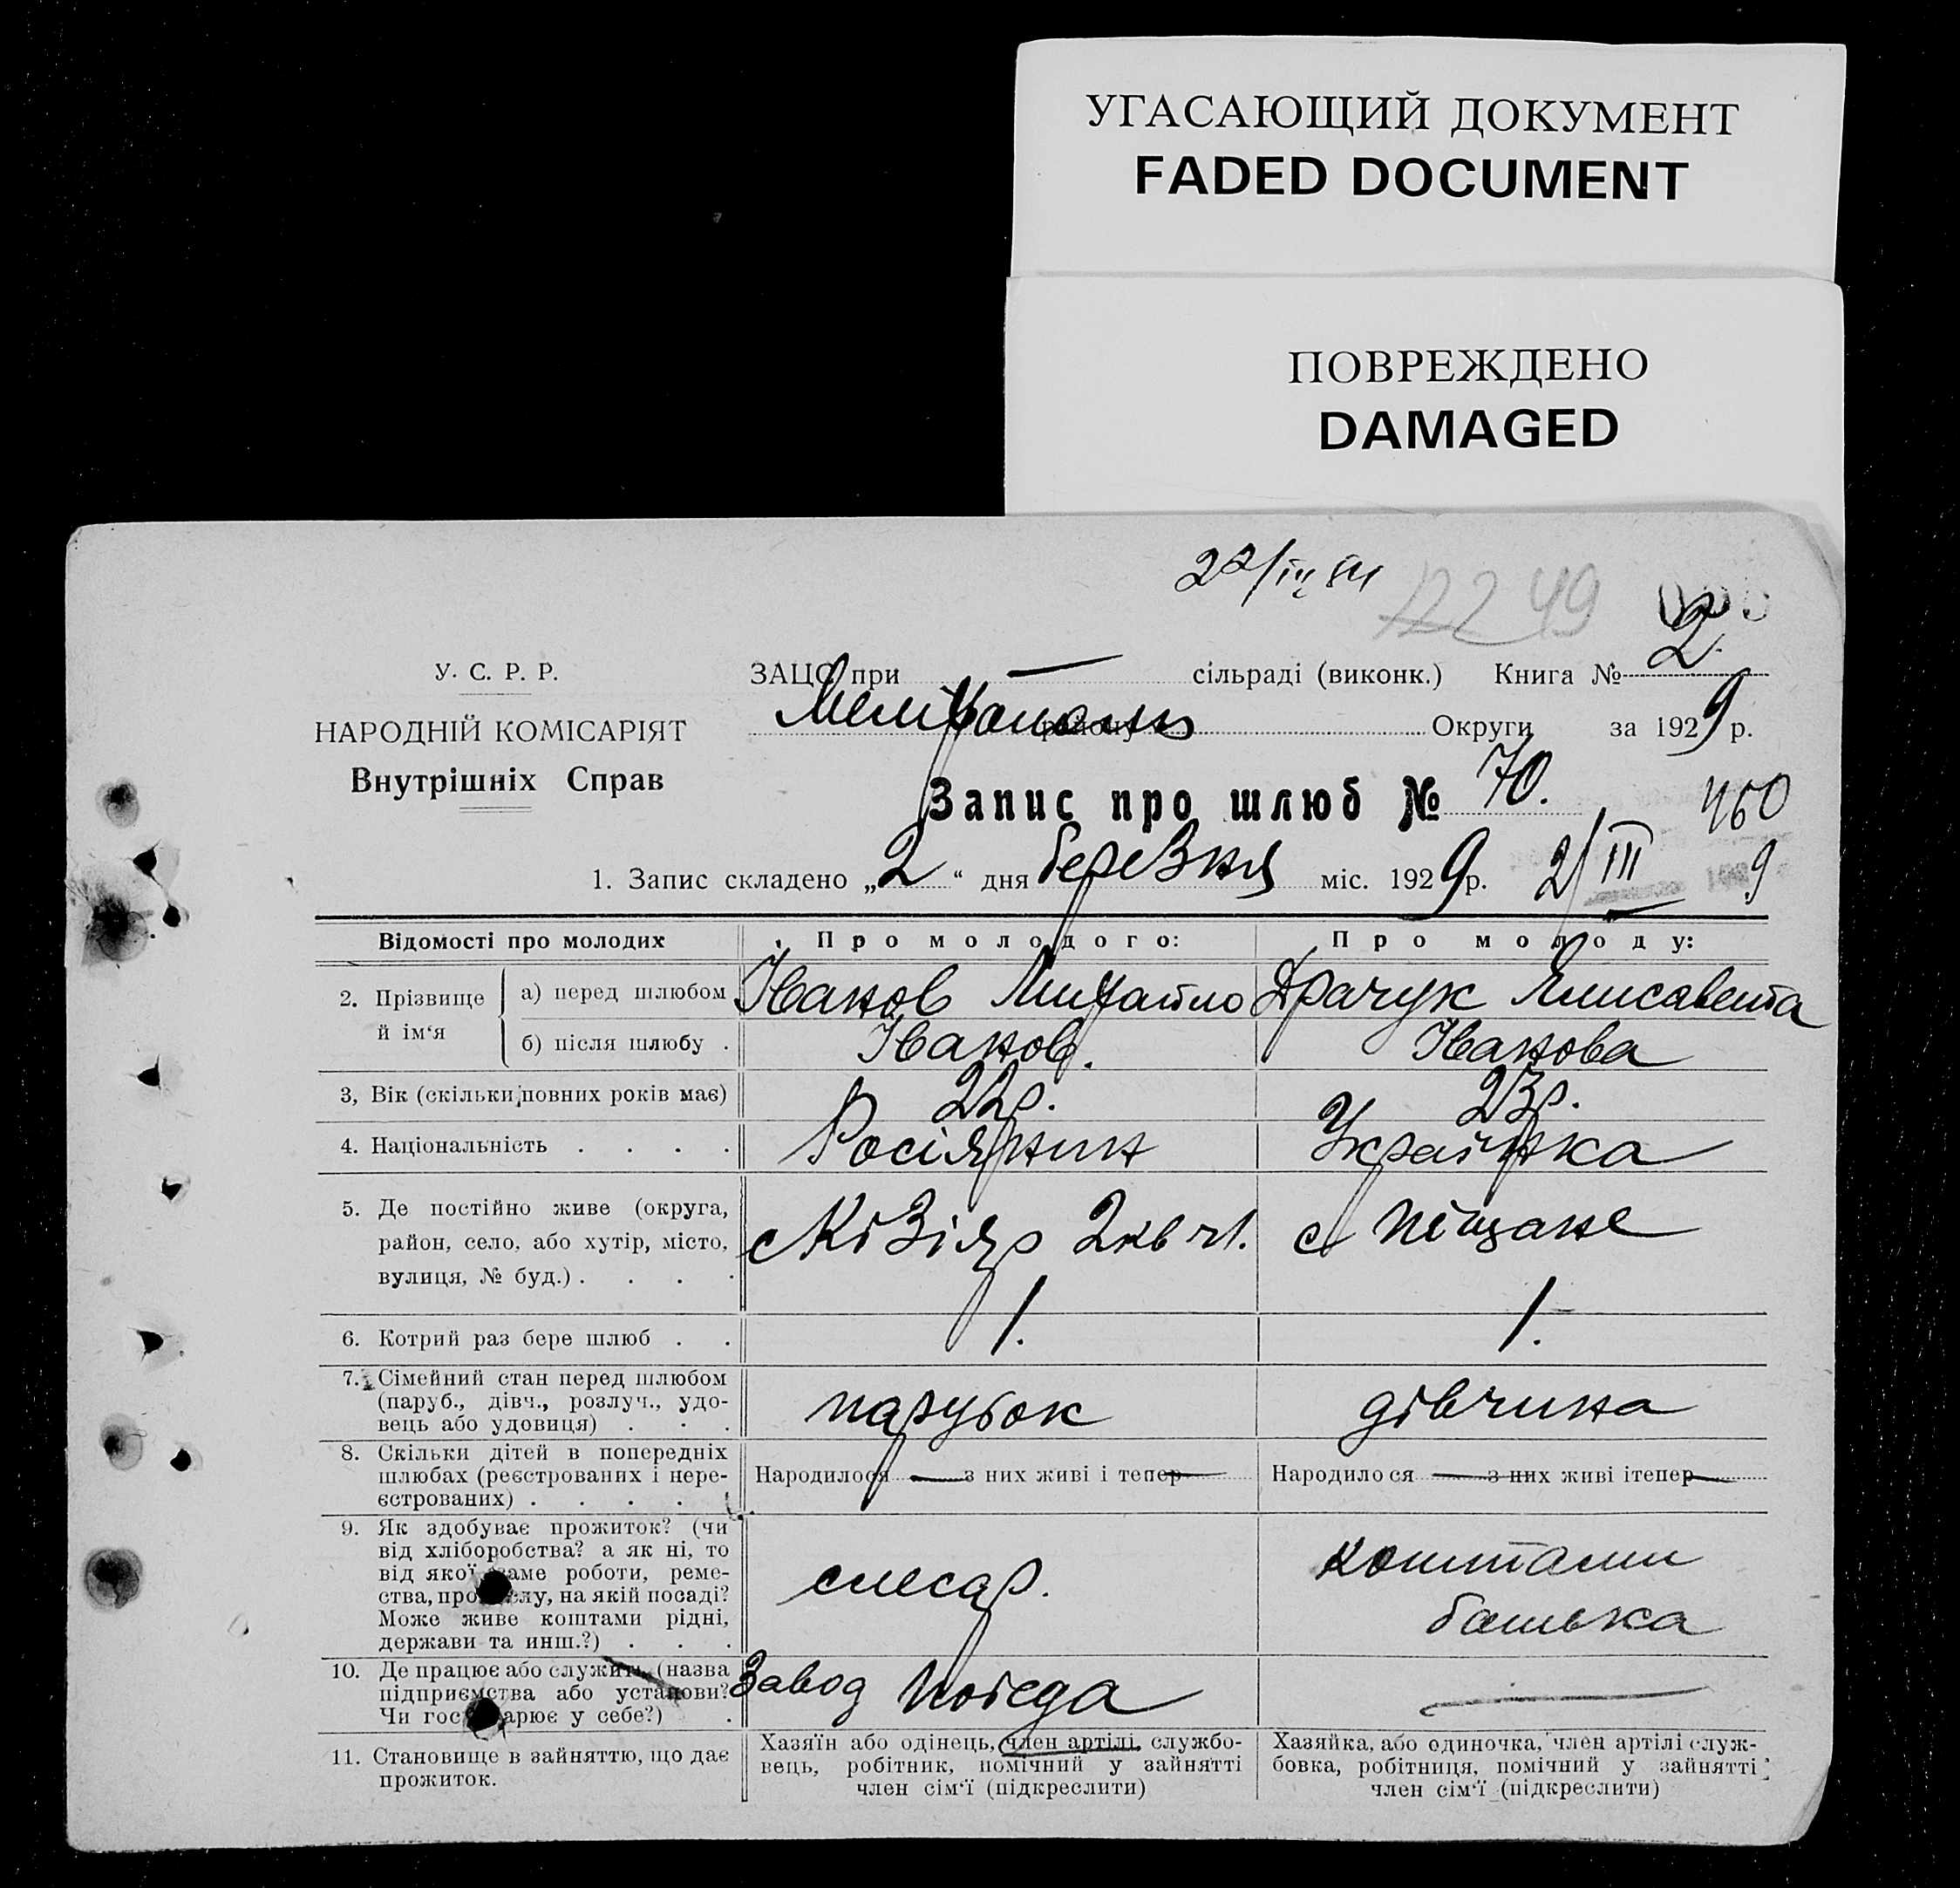 УГАСАЮЩИЙ ДОКУМЕНТ
FADED DOCUMENT
ПОВРЕЖДЕНО
DAMAGED
2249
У. С. Р. Р.
ЗАЦС при — сільраді (виконк.) Книга № 2.
НАРОДНІЙ КОМІСАРІЯТ
Внутрішніх Справ
району Округи за 1929 р.
Запис про шлюб № 70.
460
1. Запис складено „2“ дня березня міс. 1929 р. 2/III 9
Відомості про молодих
Про молодого:
Про молоду:
2. Прізвище й ім‘я
а) перед шлюбом
Іванов Михайло
Драчук Єлисавета
б) після шлюбу .
Іванов.
Іванова
3, Вік (скільки повних років має)
22р.
23р.
4. Національність . . . .
Росіянин
Українка
5. Де постійно живе (округа,
район, село, або хутір, місто,
вулиця, № буд.) . . . .
с Кізіяр 2кв ч1.
с Піщане
6. Котрий раз бере шлюб . .
1.
1.
7. Сімейний стан перед шлюбом
(паруб., дівч., розлуч., удо-
вець або удовиця) . . .
парубок
дівчина
8. Скільки дітей в попередніх
шлюбах (реєстрованих і нере-
єстрованих) . . . . .
Народилося — з них живі і тепер —
Народилося — з них живі ітепер —
9. Як здобуває прожиток? (чи
від хліборобства? а як ні, то
від якої саме роботи, реме-
ства, промислу, на якій посаді?
Може живе коштами рідні,
держави та инш.?) . . .
слесар.
коштами
батька
10. Де працює або служить (назва
підприємства або установи?
Чи господарює у себе?) .
Завод Победа
—
11. Становище в зайняттю, що дає
прожиток.
Хазяїн або одінець, член артілі, службо-
вець, робітник, помічний у зайнятті
член сім‘ї (підкреслити)
Хазяйка, або одиночка, член артілі служ-
бовка, робітниця, помічний у зайнятті
член сім‘ї (підкреслити)